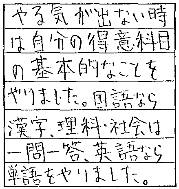 やる気が出ない時
は自分の得意科目
の基本的なことを
やりました。国語なら
漢字、理科・社会は
一問一答、英語なら
単語をやりました。